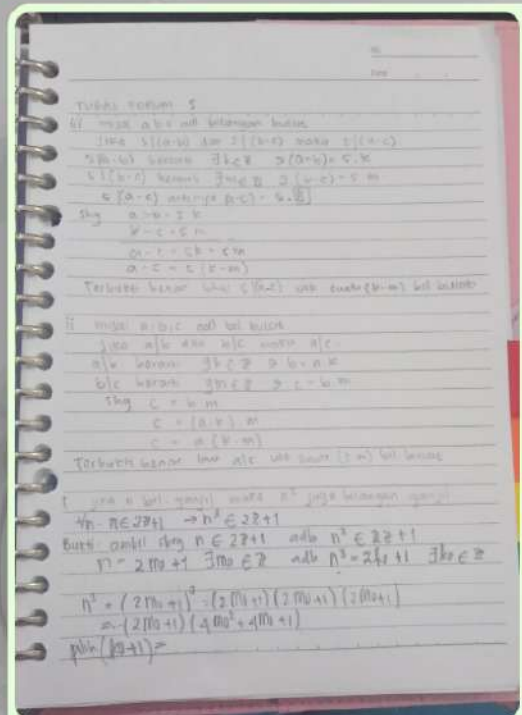 TUGAS FORUM 5
misal a b c adl bilangan bulat
Jika 5|(a-b) dan 5|(b-c) maka 5|(a-c)
5|(a-b) berarti ∃k∈Z ∋ (a-b) = 5.k
5|(b-c) berarti ∃m∈Z ∋ (b-c) = 5 m
5|(a-c) artinya (a-c) = 5.
Shg a-b = 5 k
b-c = 5 m
a-c = 5k + 5m
a-c = 5 (k-m)
Terbukti benar bhw 5|(a-c) utk suatu (k-m) bil bulat
ii misal a,b,c adl bil bulat
Jika a|b dan b|c maka a|c
a|b berarti ∃k∈Z ∋ b = a.k
b|c berarti ∃m∈Z ∋ c = b.m
Shg c = b m
c = (a.k).m
c = a (k.m)
Terbukti benar bhw a|c utk suatu bil bulat
Jika n bil ganjil maka n³ juga bilangan ganjil
∀n. n∈2Z+1 → n³ ∈ 2Z+1
Bukti: ambil sbrg n ∈ 2Z+1 adb n³ ∈ 2Z+1
n = 2m₀+1 ∃m₀∈Z adb n³ = 2k₀+1 ∃k₀∈Z
n³ = (2m₀+1)³ = (2m₀+1)(2m₀+1)(2m₀+1)
= (2m₀+1)(4m₀²+4m₀+1)
pilih (k₀+1) =